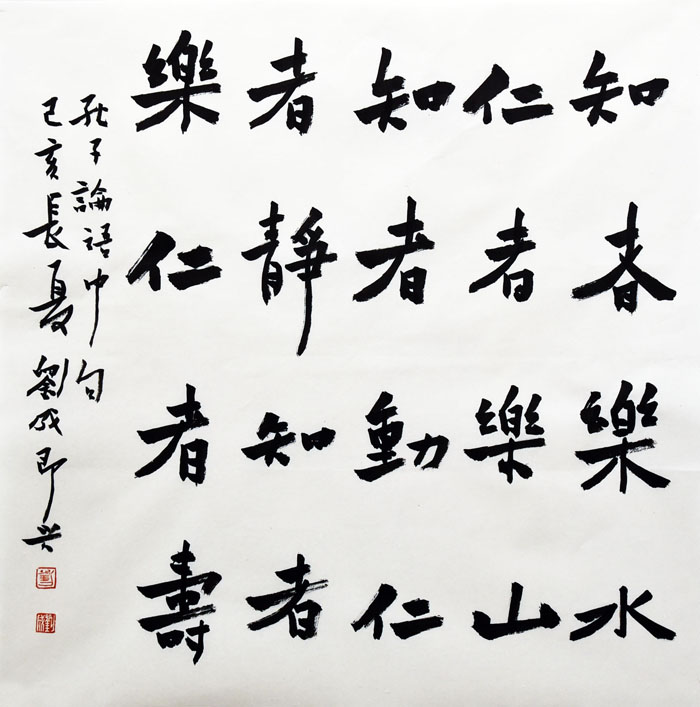 知春樂水
仁者樂山
知者動仁
者靜知者
樂仁者壽
孔子論語中句
己亥長夏劉成即兴